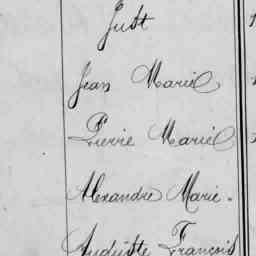 Just
Jean Marie
Pierre Marie
Alexandre Marie.
Auguste François